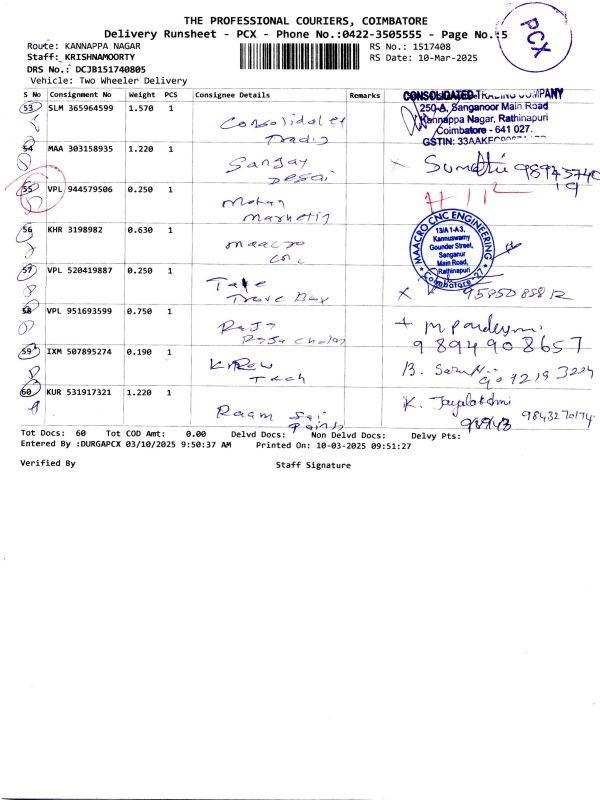 THE PROFESSIONAL COURIERS, COIMBATORE
Delivery Runsheet - PCX - Phone No.:0422-3505555 - Page No.:5
PCX
Route: KANNAPPA NAGAR
RS No.: 1517408
Staff: KRISHNAMOORTY
RS Date: 10-Mar-2025
DRS No.: DCJB151740805
Vehicle: Two Wheeler Delivery
S No Consignment No Weight PCS Consignee Details Remarks
CONSOLIDATED TRADING COMPANY
250-A, Sanganoor Main Road
Kannappa Nagar, Rathinapuri
Coimbatore - 641 027.
GSTIN: 33AAKF
53 SLM 365964599 1.570 1 Consolidated
Trading
54 MAA 303158935 1.220 1 Sanjay
Desai
Sumathi
55 VPL 944579506 0.250 1 Mohan
Marketing
56 KHR 3198982 0.630 1 Maacro
CNC
MAACRO CNC ENGINEERING
13/A1-A3,
Kannuswamy
Gounder Street,
Sanganur
Main Road,
Rathinapuri
Coimbatore-27
57 VPL 520419887 0.250 1
58 VPL 951693599 0.750 1 Raja
Raja Cholan
9894908657
59 IXM 507895274 0.190 1
Tech
60 KUR 531917321 1.220 1 Raam Sai
Points
K. Jayalakshmi
9843270174
Tot Docs: 60 Tot COD Amt: 0.00 Delvd Docs: Non Delvd Docs: Delvy Pts:
Entered By :DURGAPCX 03/10/2025 9:50:37 AM Printed On: 10-03-2025 09:51:27
Verified By Staff Signature